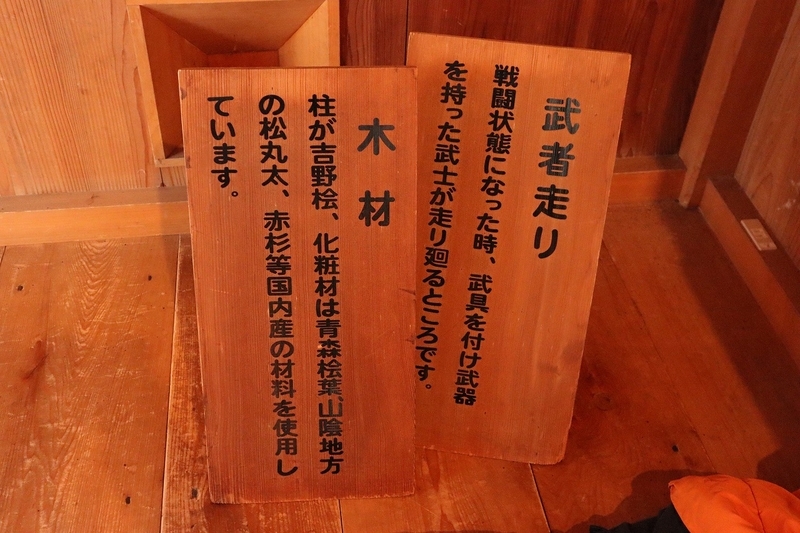 武者走り
戦闘状態になった時、武具を付け武器
を持った武士が走り廻るところです。
木材
柱が吉野桧、化粧材は青森桧葉、山陰地方
の松丸太、赤杉等国内産の材料を使用し
ています。